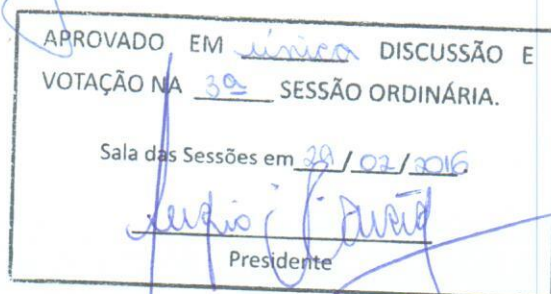 APROVADO EM única DISCUSSÃO E
VOTAÇÃO NA 3ª SESSÃO ORDINÁRIA.
Sala das Sessões em 29/02/2016
Presidente